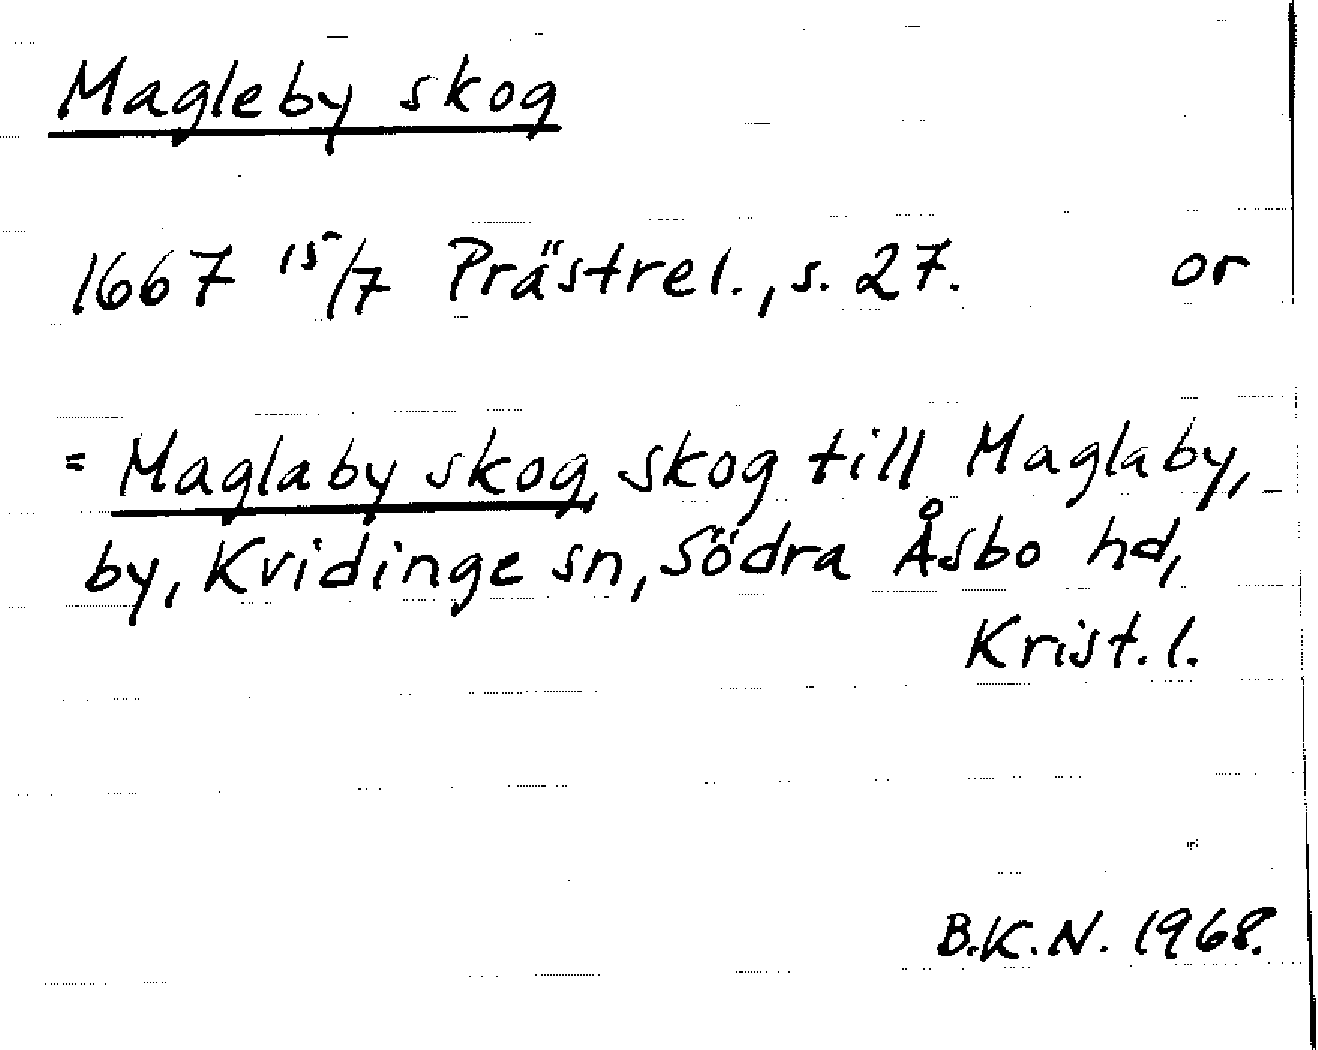 Magleby skog
1667 15/7 Prästrel., s. 27. or
= Maglaby skog, skog till Maglaby,
by, Kvidinge sn, Södra Åsbo hd,
Krist. l.
B.K.N. 1968.